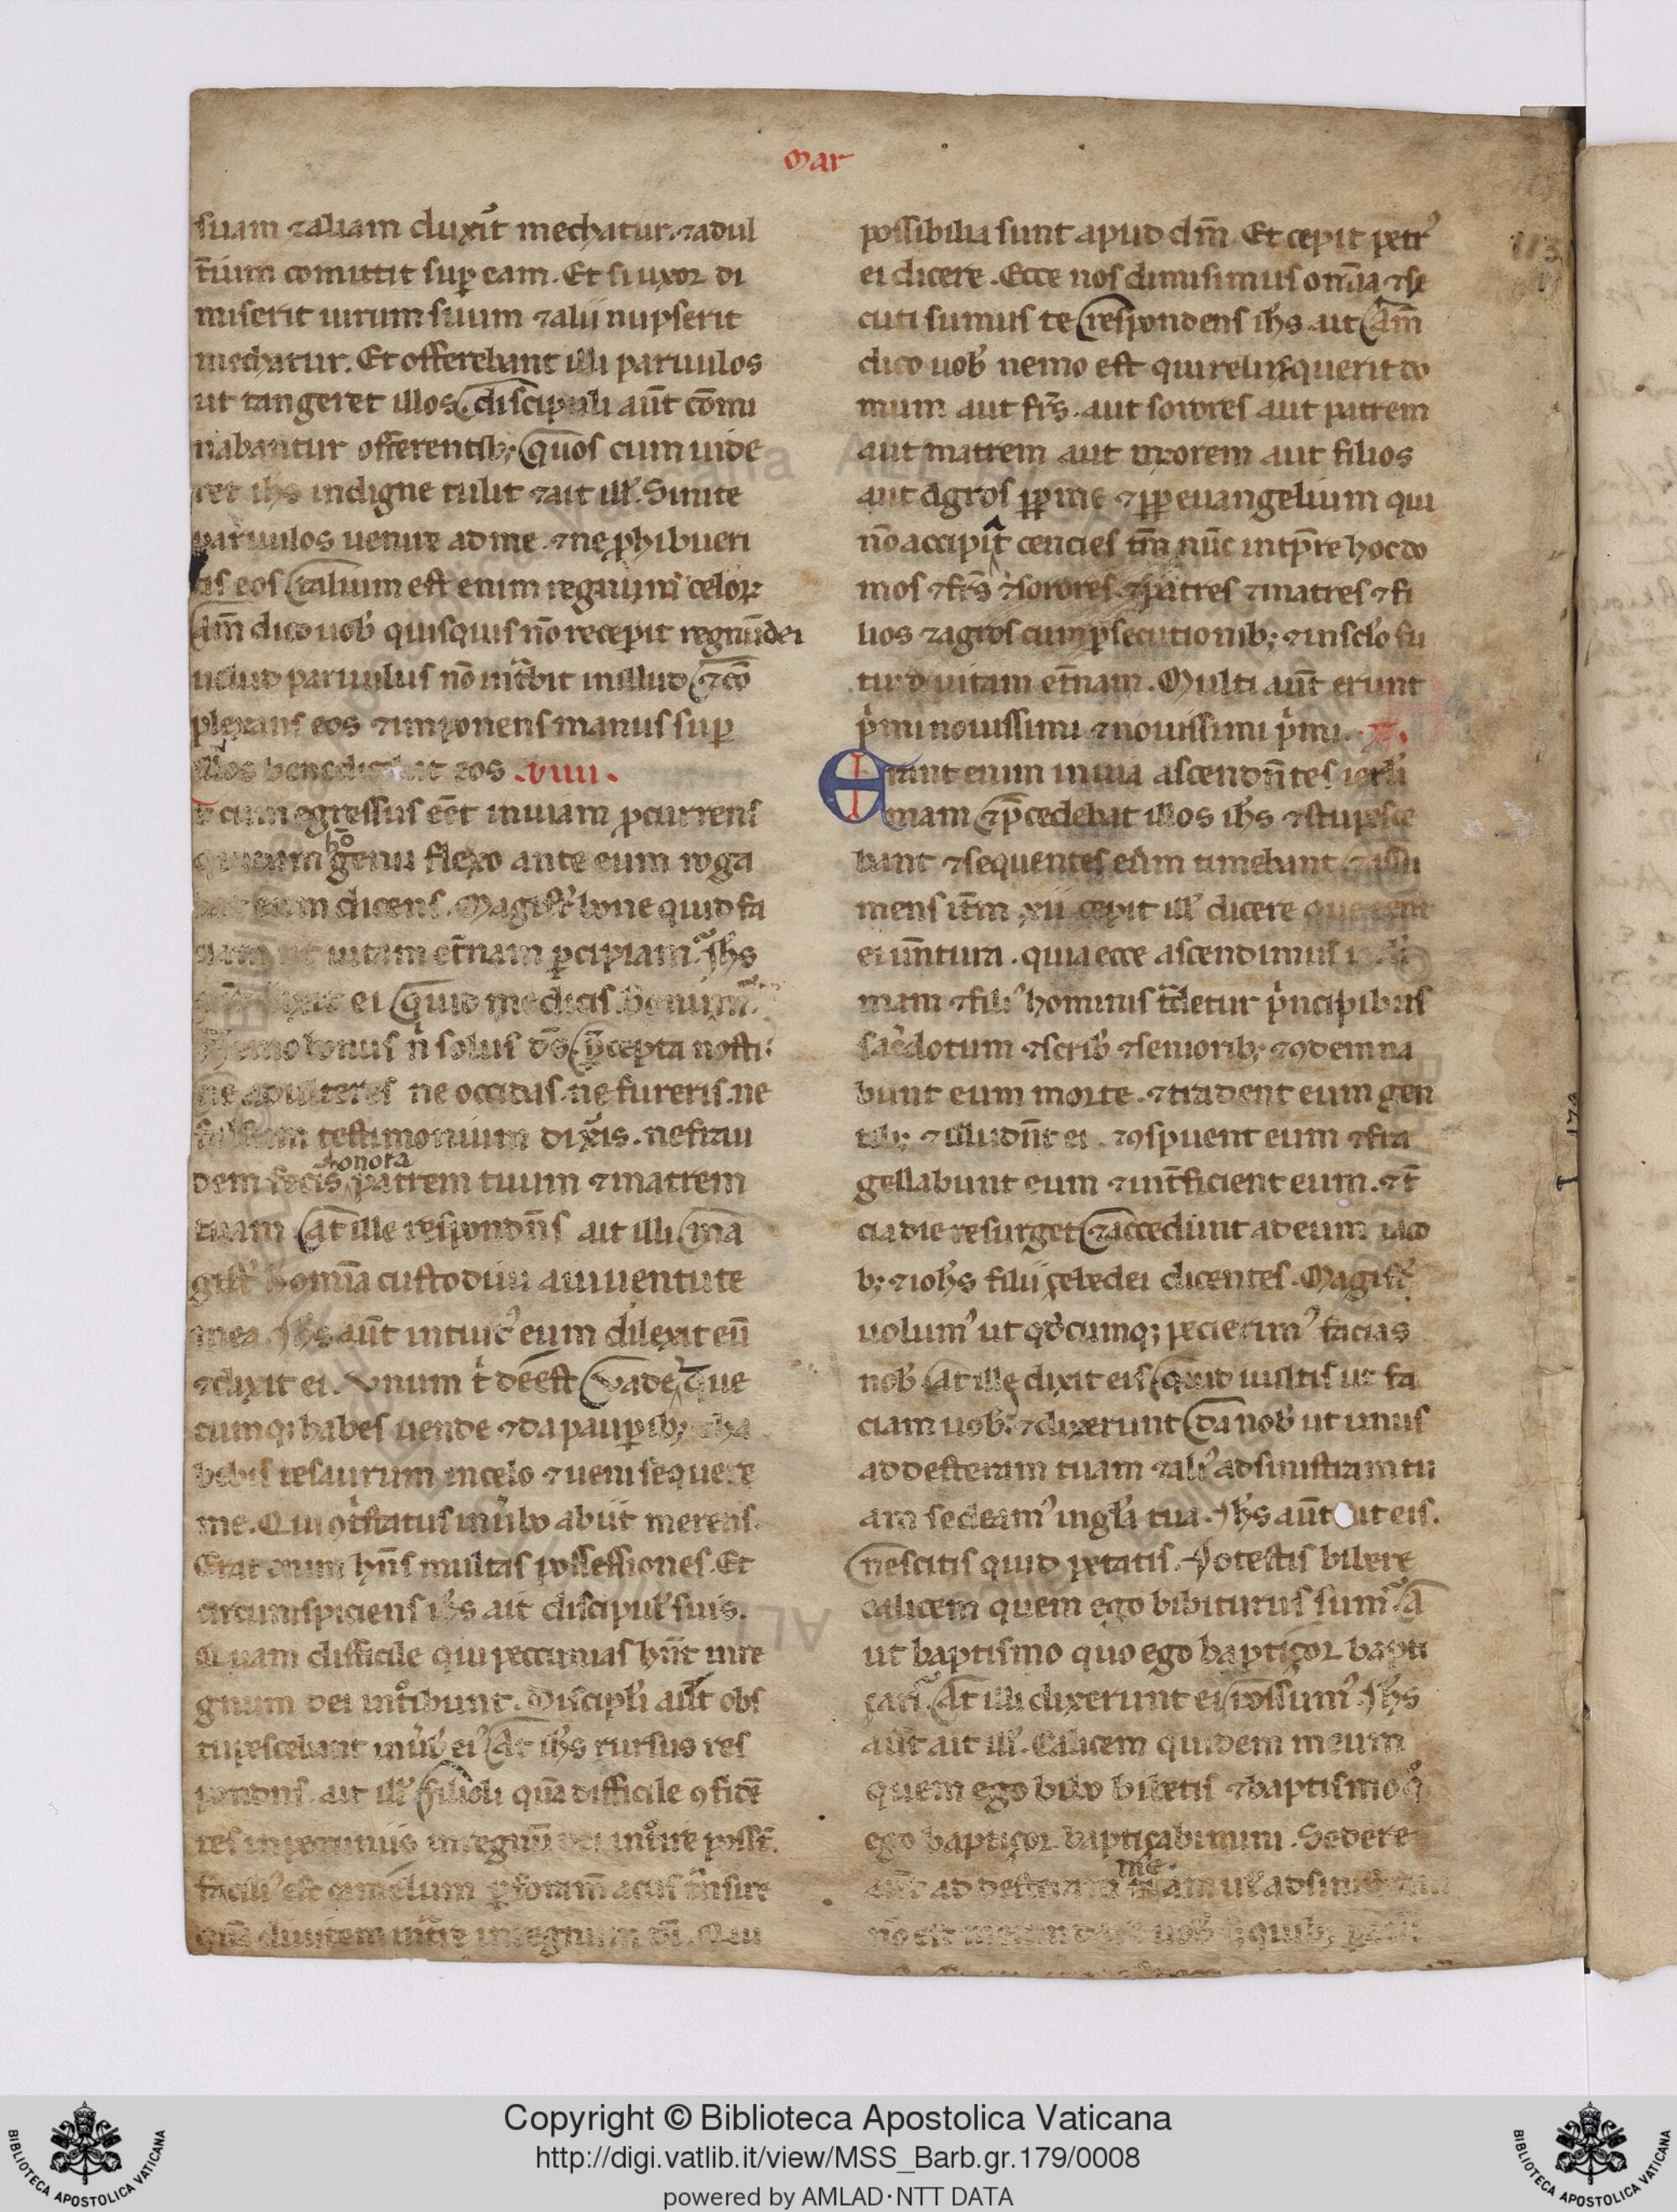 Mar
suam ⁊aliam duxit̄ mechatur. ⁊adul
t̄ium comittit sup̱ eam. Et si uxor di
miserit uirum suum ⁊alii nupserit
mechatur. Et offerebant illi paruulos
ut tangeret illos. discipuli aūt cōmi
nabantur offerentib; quos cum uide
ret ih̄s indigne tulit ⁊ait ill̓. Sinite
paruulos uenire ad me. ⁊ne ꝓhibueri
tis eos talium est enim regnum celoꝝ
am̄ dico uob̓ quisquis nō recepit regnū dei
uelud paruulus nō int̄bit in illud ⁊cō
plexans eos ⁊imponens manus sup̱
illos benedicebat eos .viiii.
t cum egressus eēt in uiam ꝓcurrens
quidam hō genu flexo ante eum roga
bat eum dicens. Magist̓ bone quid fa
ciam ut uitam et̄nam ꝑcipiam. Ih̄s
ei quid me dicis bonum.
Nemo bonus n̓ solus ds̄ p̄cepta nosti.
ne adulteres ne occidas. ne fureris. ne
falsum testimonium dix̓is. ne frau
dem fecis̓ honora patrem tuum ⁊matrem
tuam at ille respondn̄s ait illi ma
gist̓ h̓ omīa custodiui a iuuentute
mea. Ih̄s aūt intuit᾿ eum dilexit eū
⁊dixit ei. Vnum t̓ deest Vade que
cumq; habes uende ⁊da pauꝑib; ⁊ha
bebis tesaurum in celo ⁊ueni sequere
me. Qui ꝯt̓status in ūbo abiit merens.
Erat enim hn̄s multas possessiones. Et
circumspiciens ih̄s ait discipul̓ suis.
Quam difficile qui peccunias hn̄t in re
gnum dei int̊ibunt. Discipl̓i aūt obs
tupescebant in ūb̓ ei᾿ At ih̄s rursus res
pondn̄s. ait ill̓ filioli quā difficile ꝯfidē
tes in pecuniis in regnū dei int̊ire posst̄.
facili᾿ est camelum ꝑ foram̄ acus t̄nsire
quā diuitem int̓re in regnum dī. Qui
possibilia sunt apud dm̄. Et cepit petr᾿
ei dicere. Ecce nos dimisimus omīa ⁊se
cuti sumus te respondens ih̄s. ait Am̄
dico uob̓ nemo est qui relinquerit do
mum aut fr̄s. aut sorores aut patrem
aut matrem aut uxorem aut filios
aut agros ꝓp̱ me ⁊ꝓp̱ euangelium qui
nō accipiat cencies tm̄ nūc in tp̄re hoc do
mos ⁊fr̄s ⁊sorores ⁊patres ⁊matres ⁊fi
lios ⁊agros cum ꝑsecutionib; ⁊in sclo̓ fu
turo uitam et̄nam. Multi aūt erunt
p̓mi nouissimi ⁊nouissimi p̓mi. x.
Erant enim in uia ascendn̄tes ierl̓i
mam ⁊p̄cedebat illos ih̄s ⁊stupesce
bant ⁊sequentes eum timebant ⁊assu
mens it̄m xii cepit ill̓ dicere que eēnt
ei un̄tura. quia ecce ascendimus
mam ⁊fili᾿ hominis t̄detur p̓ncipibus
sac̓dotum ⁊scrib̓ ⁊seniorib; ⁊ꝯdemna
bunt eum morte. ⁊tradent eum gen
tib; ⁊illudn̄t ei. ⁊ꝯspuent eum ⁊fra
gellabunt eum ⁊int̄ficient eum. ⁊t̄
cia die resurget ⁊accedunt ad eum iaco
b; ⁊ioh̄s filii çebedei dicentes. Magist̓
uolum᾿ ut qd̓cumq; pecierim᾿ facias
nob̓ At ille dixit eis quid uultis ut fa
ciam uob̓. ⁊dixerunt da nob̓ ut unus
ad desteram tuam ⁊ali᾿ ad sinistram tu
am sedeam᾿ in gl̓ia tua. Ih̄s aūt ait eis.
nescitis quid petatis. Potestis bibere
calicem quem ego bibiturus sum. A
ut baptismo quo ego baptiçor bapti
çari. At illi dixerunt ei possum᾿. Ih̄s
aūt ait ill̓. Calicem quidem meum
quem ego bibo bibetis ⁊baptismo q̊
ego baptiçor baptiçabimini. Sedere
aūt ad desteram me am ul̓ ad sinistram
nō est meum dare uob̓ quib;